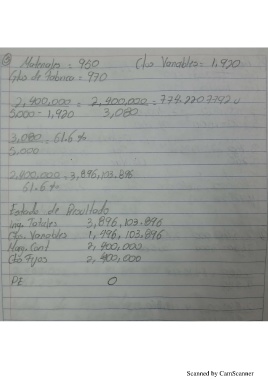 Materiales = 950 Cto Variables = 1,920
Gto de Fabrica = 970
2,400,000 = 2,400,000 = 779.2207792 u
5,000 - 1,920 3,080
3,080 = 61.6 %
5,000
2,400,000 = 3,896,103.896
61.6 %
Estado de Resultado
Ing. Totales 3,896,103.896
Cto. Variables 1,496,103.896
Mag. Cont 2,400,000
Cto Fijos 2,400,000
PE 0
Scanned by CamScanner